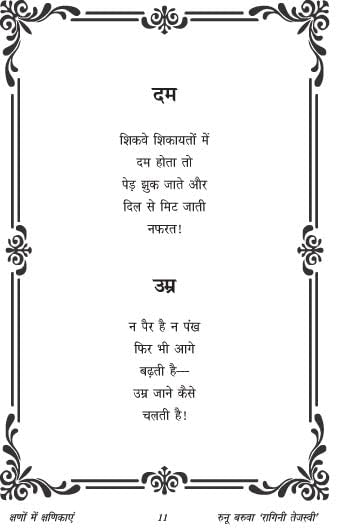 दम
शिकवे शिकायतों में
दम होता तो
पेड़ झुक जाते और
दिल से मिट जाती
नफरत!
उम्र
न पैर है न पंख
फिर भी आगे
बढ़ती है—
उम्र जाने कैसे
चलती है!
क्षणों में क्षणिकाएं 11 रुनू बरुवा 'रागिनी तेजस्वी'